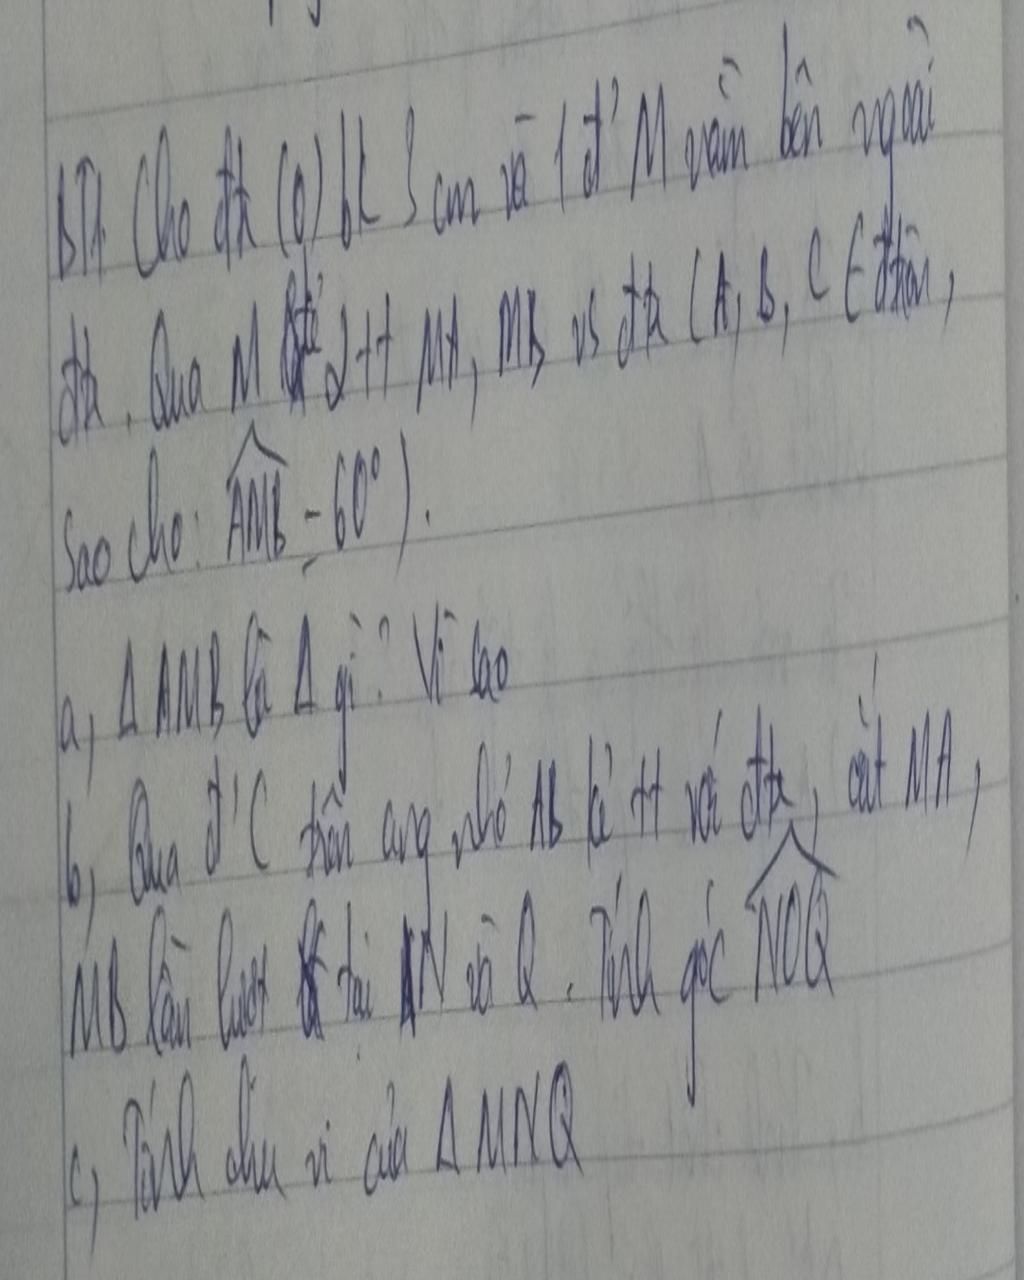 BT1. Cho đtr (O) bk 3 cm và 1 đ' M nằm bên ngoài
đtr. Qua M kẻ 2 tt MA, MB vs đtr (A, B, C ∈ đtròn,
sao cho: AMB = 60°).
a, Δ AMB là Δ gì? Vì sao
b, Qua đ' C trên cung nhỏ AB kẻ tt với đtr, cắt MA,
MB lần lượt tại N và Q. Tính góc NOQ
c, Tính chu vi của Δ MNQ